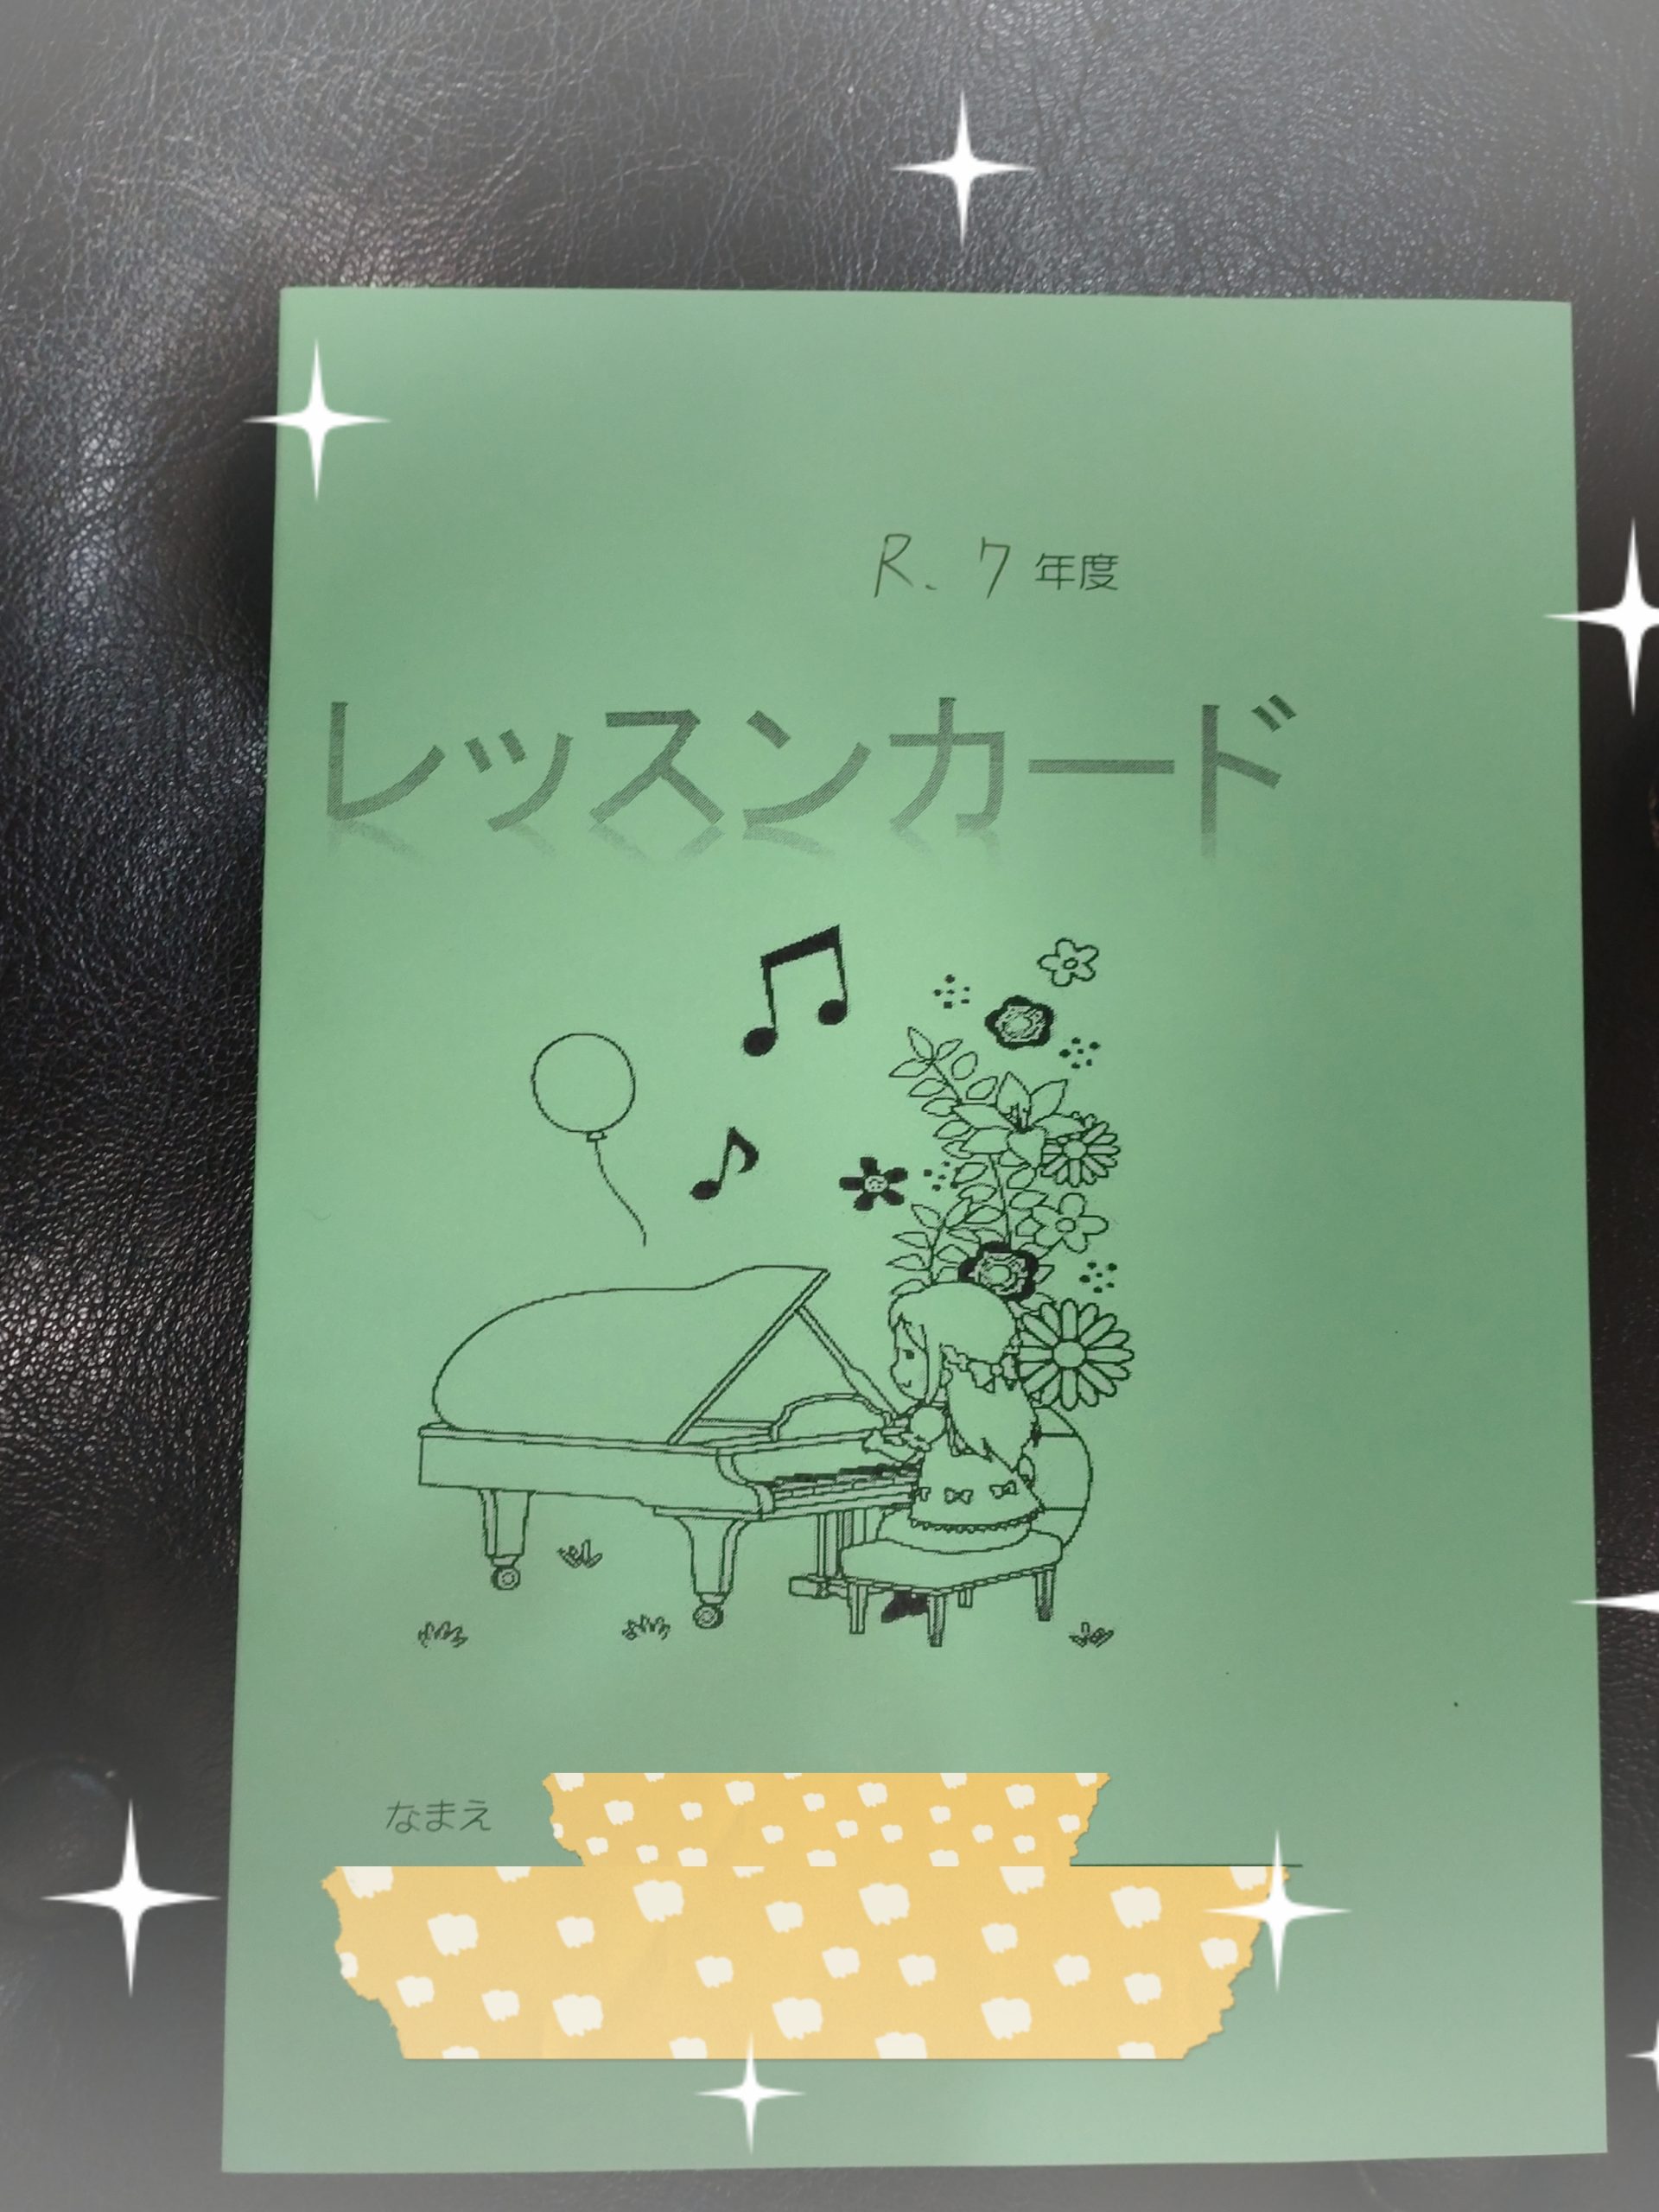 R. 7 年度
レッスンカード
なまえ